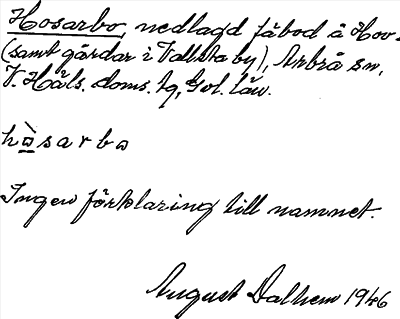 Hosarbo, nedlagd fäbod å Hov-
(samt gårdar i Vallsta by), Arbrå sn,
V. Häls. doms. tg, Gvl. län.
hò̤sarbo
Ingen förklaring till namnet.
August Dalhem 1946